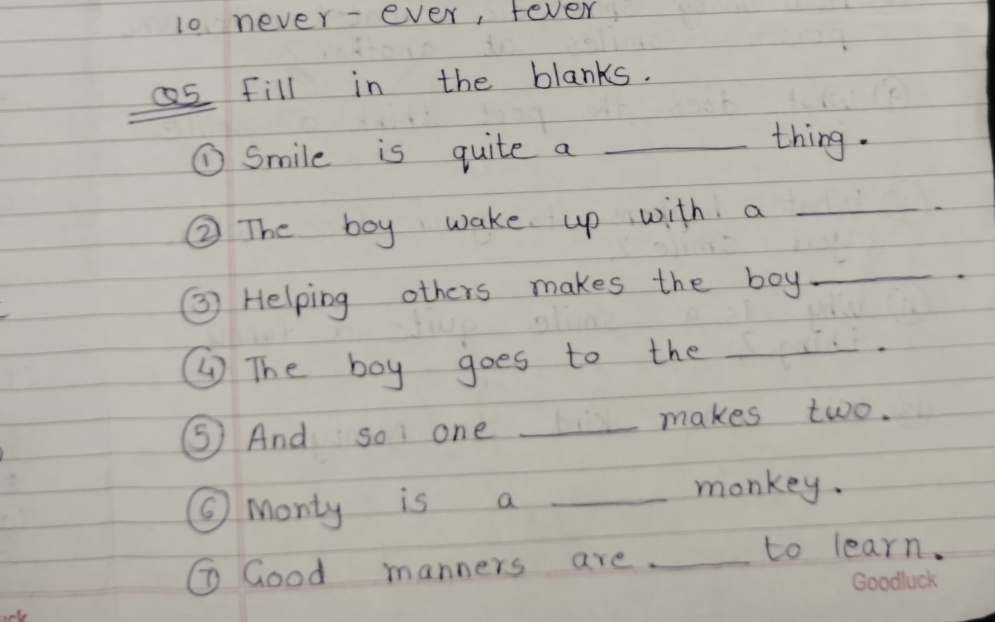 10 never - ever, fever
Q5 Fill in the blanks.
① Smile is quite a ______ thing.
② The boy wake up with a ______.
③ Helping others makes the boy ______.
④ The boy goes to the ______.
⑤ And so one ______ makes two.
⑥ Monty is a ______ monkey.
⑦ Good manners are ______ to learn.
Goodluck